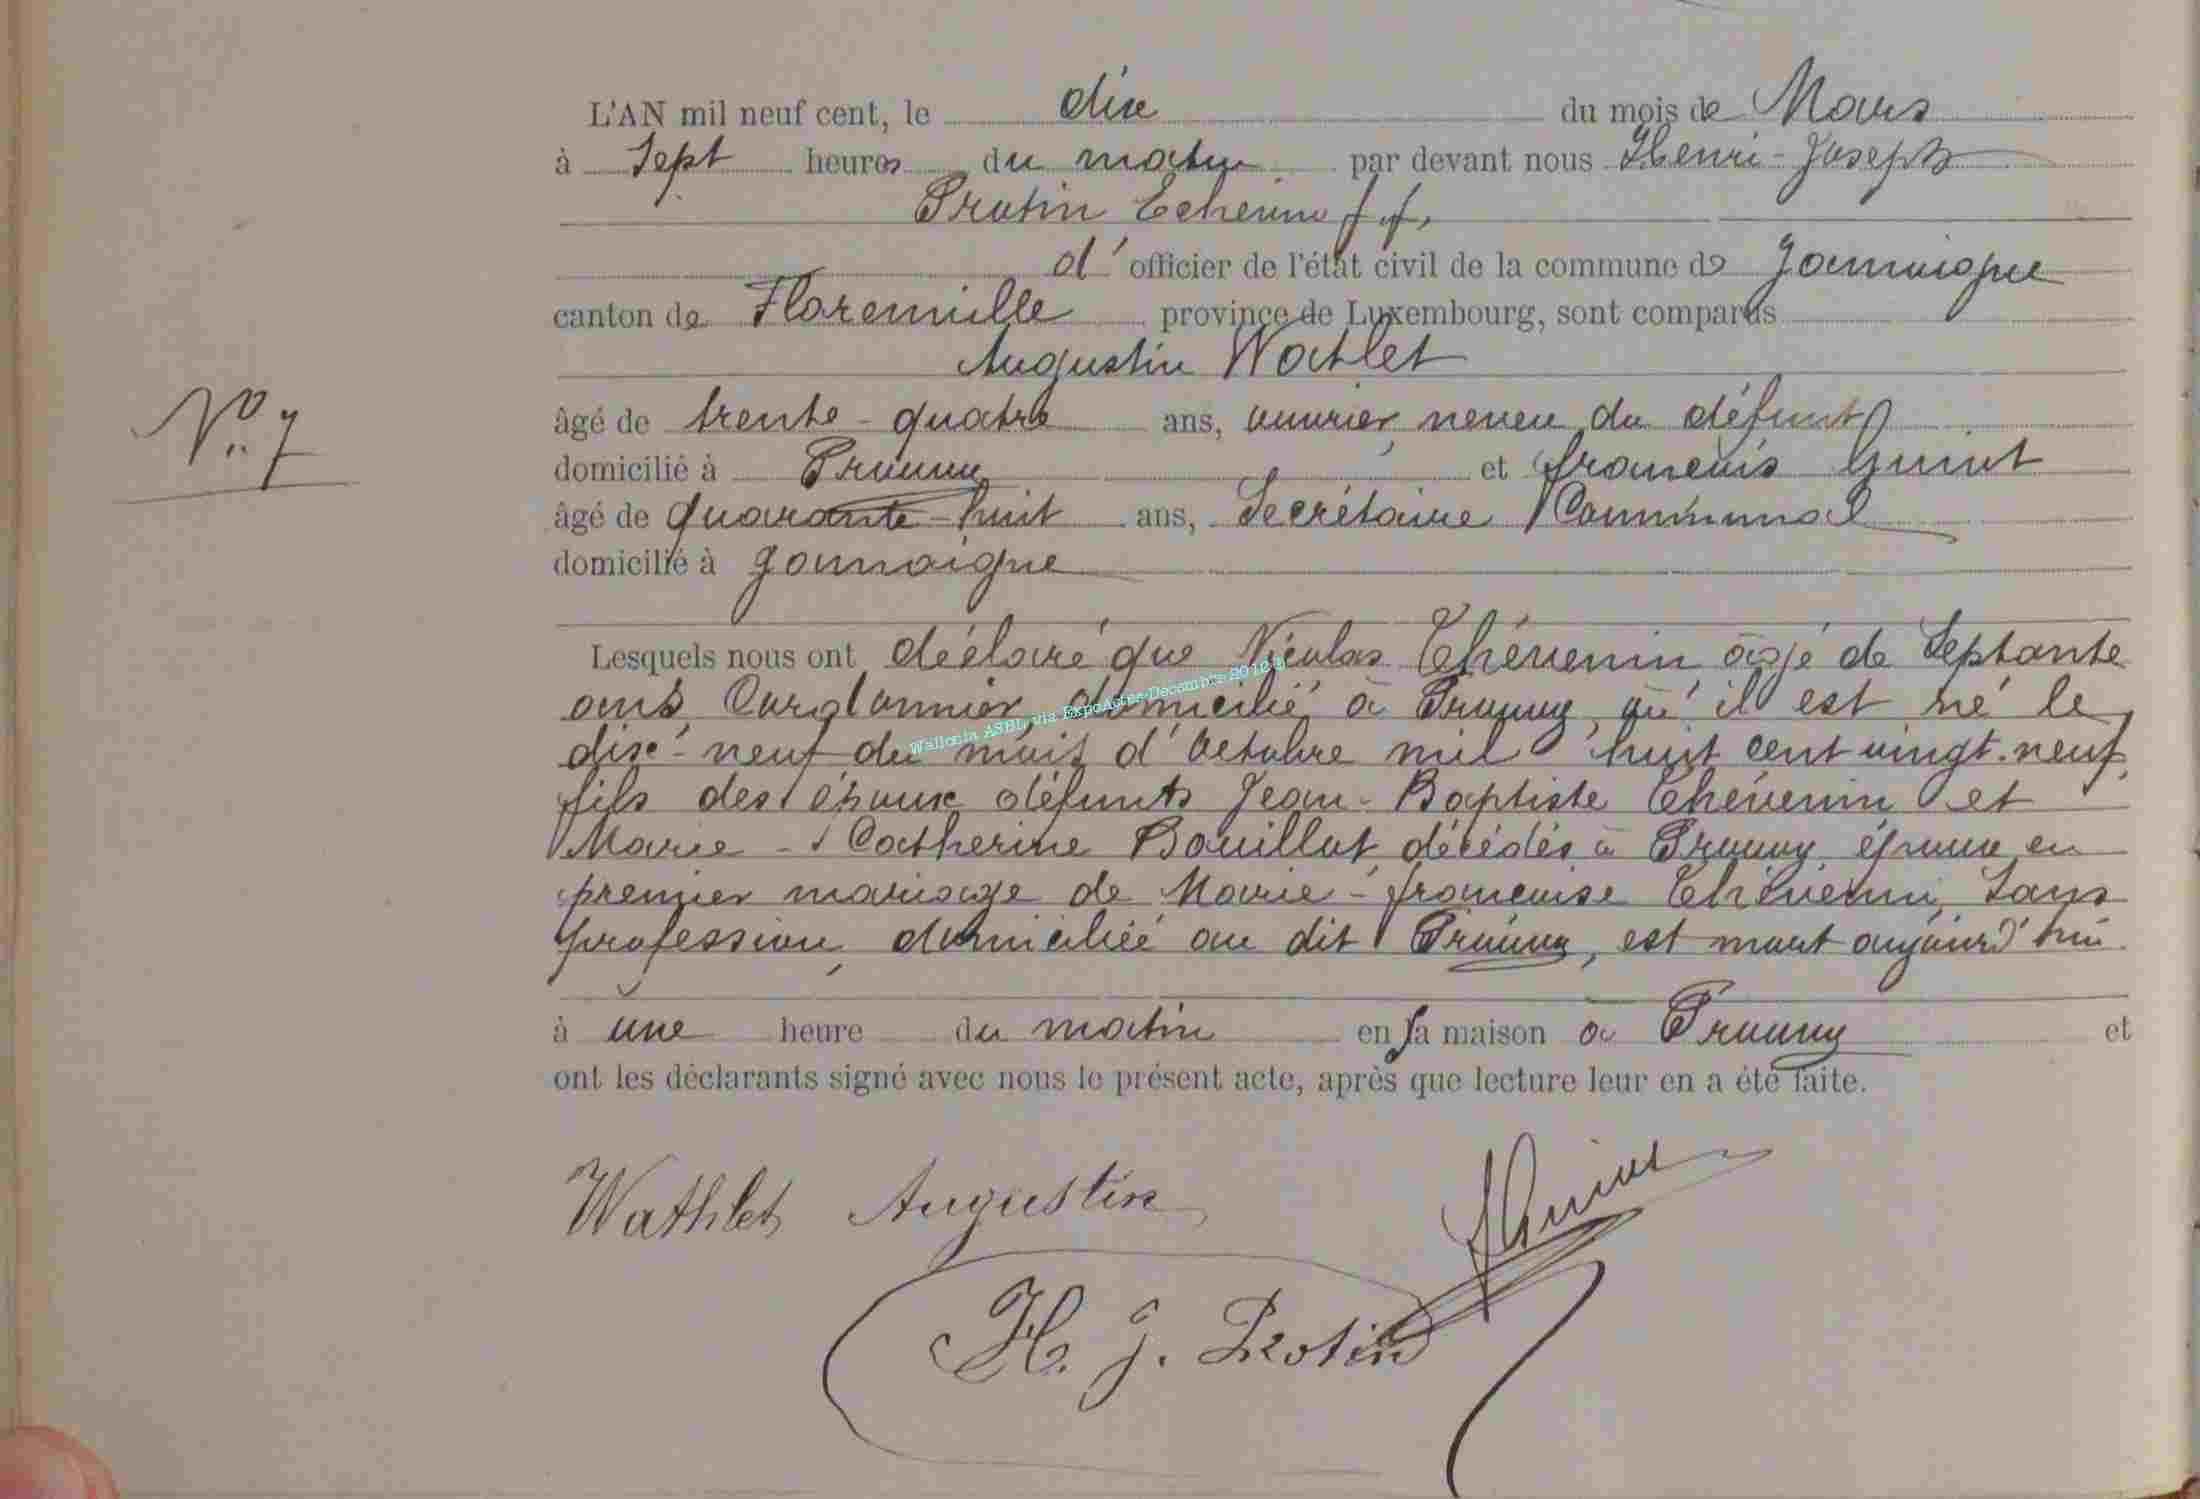 L'AN mil neuf cent, le dix du mois de Mars
à Sept heures du matin par devant nous Henri-Joseph
Protin Echevin f.f.
d'officier de l'état civil de la commune de Jamoigne
canton de Florenville province de Luxembourg, sont comparus
Augustin Wathlet
N° 7
âgé de trente-quatre ans, ouvrier, neveu du défunt
domicilié à Prouvy et François Guiot
âgé de quarante-huit ans, Secrétaire Communal
domicilié à Jamoigne
Lesquels nous ont déclaré que Nicolas Thévenin, âgé de Septante
ans, Cordonnier, domicilié à Prouvy, où il est né le
dix-neuf du mois d'Octobre mil huit cent vingt-neuf,
fils des époux défunts Jean-Baptiste Thévenin et
Marie-Catherine Bouillot, décédés à Prouvy, époux en
premier mariage de Marie-Françoise Thévenin, Sans
profession, domiciliée au dit Prouvy, est mort aujourd'hui
à une heure du matin en sa maison à Prouvy et
ont les déclarants signé avec nous le présent acte, après que lecture leur en a été faite.
Wathlet Augustin
F Guiot
H. J. Protin
Wallonia ASBL, via ExpoActes-Décembre 2012